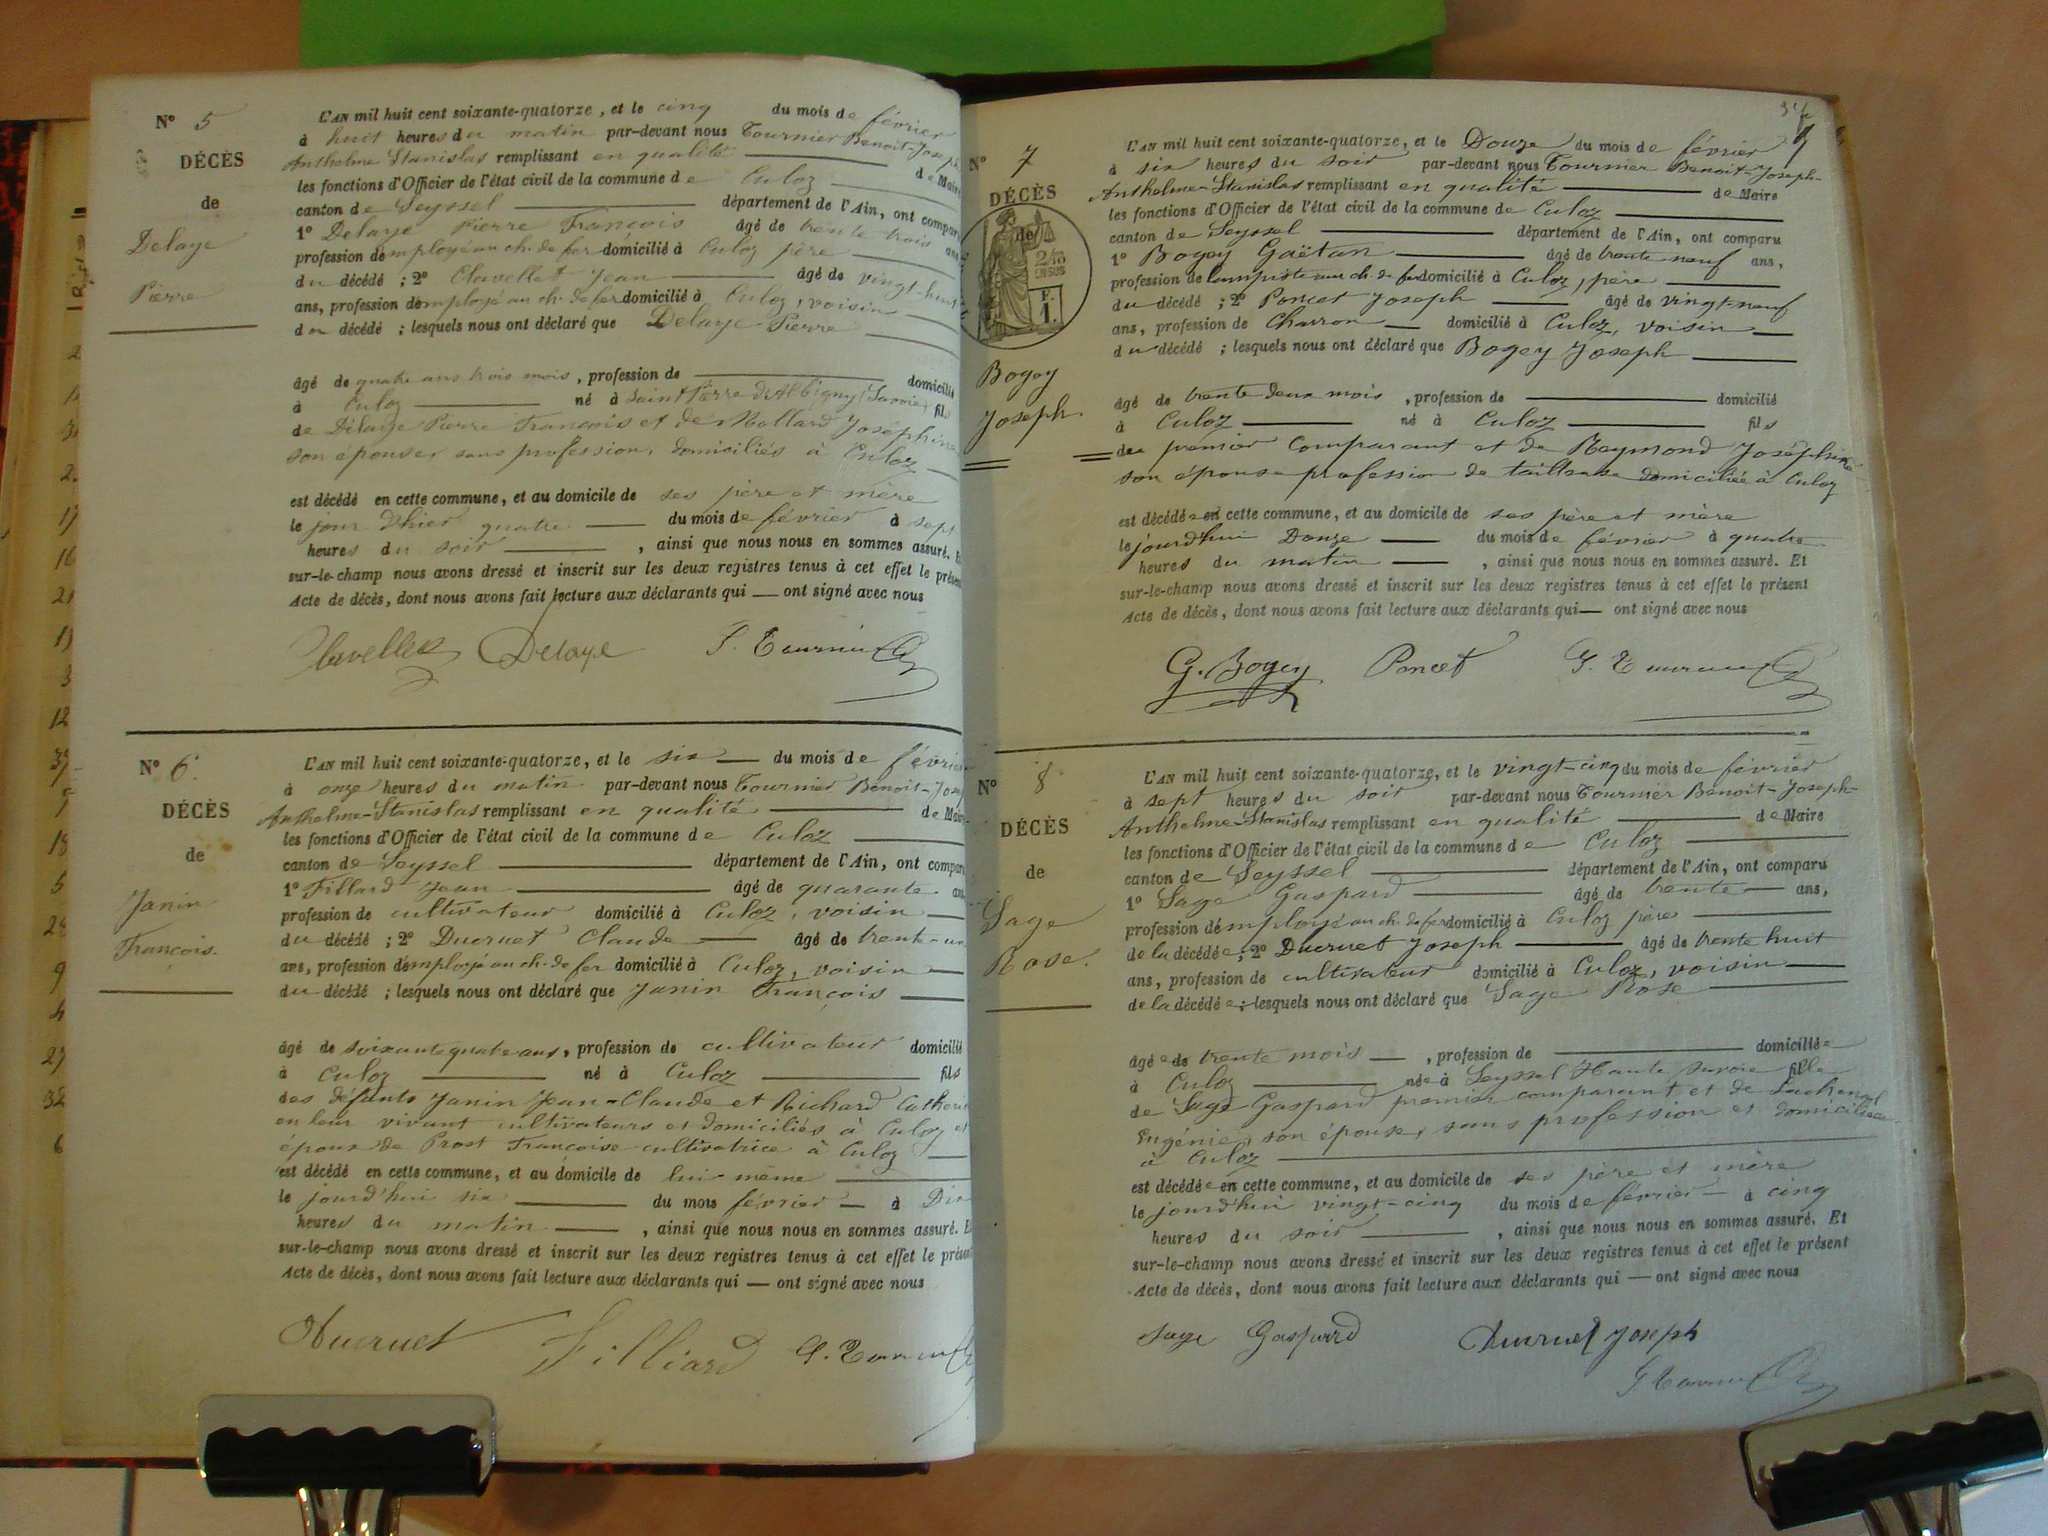 N° 5
DÉCÈS
de
Delaye
Pierre
L'AN mil huit cent soixante-quatorze, et le cinq du mois de février
à huit heures du matin par-devant nous Tournier Benoit-Joseph
Anthelme Stanislas remplissant en qualité de Maire
les fonctions d'Officier de l'état civil de la commune de Culoz
canton de Seyssel département de l'Ain, ont comparu
1° Delaye Pierre François âgé de trente trois ans
profession demployé au ch. de fer domicilié à Culoz père
du décédé ; 2° Clavellet Jean âgé de vingt-huit
ans, profession demployé au ch. de fer domicilié à Culoz, voisin
du décédé ; lesquels nous ont déclaré que Delaye Pierre
âgé de quatre ans trois mois, profession de domicilié
à Culoz né à Saint Pierre d'Albigny (Savoie) fils
de Delaye Pierre François et de Mollard Joséphine
son épouse, sans profession, domiciliés à Culoz
est décédé en cette commune, et au domicile de ses père et mère
le jour d'hier quatre du mois de février à sept
heures du soir, ainsi que nous nous en sommes assuré. Et
sur-le-champ nous avons dressé et inscrit sur les deux registres tenus à cet effet le présent
Acte de décès, dont nous avons fait lecture aux déclarants qui — ont signé avec nous
Clavellet Delaye Tournier
N° 6
DÉCÈS
de
Janin
François.
L'AN mil huit cent soixante-quatorze, et le six du mois de février
à onze heures du matin par-devant nous Tournier Benoit-Joseph
Anthelme-Stanislas remplissant en qualité de Maire
les fonctions d'Officier de l'état civil de la commune de Culoz
canton de Seyssel département de l'Ain, ont comparu
1° Fillard Jean âgé de quarante ans
profession de cultivateur domicilié à Culoz, voisin
du décédé ; 2° Ducruet Claude âgé de trente-un
ans, profession demployé au ch. de fer domicilié à Culoz, voisin
du décédé ; lesquels nous ont déclaré que Janin François
âgé de soixante quatre ans, profession de cultivateur domicilié
à Culoz né à Culoz fils
des défunts Janin Jean-Claude et Richard Catherine
en leur vivant cultivateurs et domiciliés à Culoz et
époux de Prost Françoise cultivatrice à Culoz
est décédé en cette commune, et au domicile de lui-même
le jourd'hui six du mois février à Dix
heures du matin, ainsi que nous nous en sommes assuré. Et
sur-le-champ nous avons dressé et inscrit sur les deux registres tenus à cet effet le présent
Acte de décès, dont nous avons fait lecture aux déclarants qui — ont signé avec nous
Ducruet Filliard Tournier
N° 7
DÉCÈS
de
Bogey
Joseph.
L'AN mil huit cent soixante-quatorze, et le Douze du mois de février
à six heures du soir par-devant nous Tournier Benoit-Joseph-
Anthelme-Stanislas remplissant en qualité de Maire
les fonctions d'Officier de l'état civil de la commune de Culoz
canton de Seyssel département de l'Ain, ont comparu
1° Bogey Gaëtan âgé de trente-neuf ans,
profession de lampiste au ch. de fer domicilié à Culoz, père
du décédé ; 2° Poncet Joseph âgé de vingt-neuf
ans, profession de Charron domicilié à Culoz, voisin
du décédé ; lesquels nous ont déclaré que Bogey Joseph
âgé de trente deux mois, profession de domicilié
à Culoz né à Culoz fils
du premier comparant et de Reymond Joséphine
son épouse profession de tailleuse domiciliée à Culoz
est décédé en cette commune, et au domicile de ses père et mère
le jourd'hui Douze du mois de février à quatre
heures du matin, ainsi que nous nous en sommes assuré. Et
sur-le-champ nous avons dressé et inscrit sur les deux registres tenus à cet effet le présent
Acte de décès, dont nous avons fait lecture aux déclarants qui — ont signé avec nous
G. Bogey Poncet Tournier
N° 8
DÉCÈS
de
Sage
Rose.
L'AN mil huit cent soixante-quatorze, et le vingt-cinq du mois de février
à sept heures du soir par-devant nous Tournier Benoit-Joseph-
Anthelme-Stanislas remplissant en qualité de Maire
les fonctions d'Officier de l'état civil de la commune de Culoz
canton de Seyssel département de l'Ain, ont comparu
1° Sage Gaspard âgé de trente ans,
profession demployé au ch. de fer domicilié à Culoz père
de la décédée ; 2° Ducruet Joseph âgé de trente huit
ans, profession de cultivateur domicilié à Culoz, voisin
de la décédée ; lesquels nous ont déclaré que Sage Rose
âgée de trente mois, profession de domiciliée
à Culoz née à Seyssel Haute Savoie fille
de Sage Gaspard premier comparant et de
Eugénie, son épouse, sans profession et domiciliée
à Culoz
est décédée en cette commune, et au domicile de ses père et mère
le jourd'hui vingt-cinq du mois de février à cinq
heures du soir, ainsi que nous nous en sommes assuré. Et
sur-le-champ nous avons dressé et inscrit sur les deux registres tenus à cet effet le présent
Acte de décès, dont nous avons fait lecture aux déclarants qui — ont signé avec nous
Sage Gaspard Ducruet Joseph
Tournier